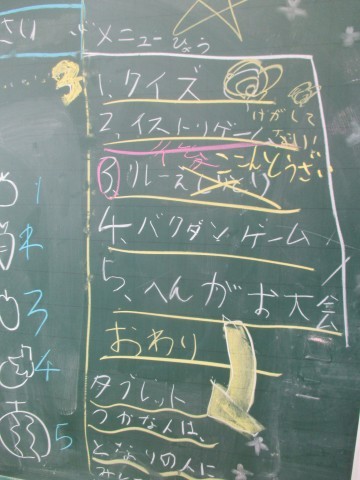 さい
メニューひょう
3
1、クイズ
2、イストリゲーム
けがして
ない
ここんとうざい
3、リレーえ
4、バクダンゲーム
5、へんがお大会
おわり
タブレット
つかな人は、
となりの人に
1
2
3
4
5